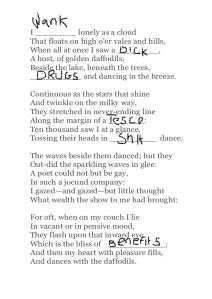 Wank
I ________ lonely as a cloud
That floats on high o'er vales and hills,
When all at once I saw a DICK,
A host, of golden daffodils;
Beside the lake, beneath the trees,
DRUGS and dancing in the breeze.
Continuous as the stars that shine
And twinkle on the milky way,
They stretched in never-ending line
Along the margin of a TESCO:
Ten thousand saw I at a glance,
Tossing their heads in Shit dance.
The waves beside them danced; but they
Out-did the sparkling waves in glee:
A poet could not but be gay,
In such a jocund company:
I gazed—and gazed—but little thought
What wealth the show to me had brought:
For oft, when on my couch I lie
In vacant or in pensive mood,
They flash upon that inward eye
Which is the bliss of Benefits;
And then my heart with pleasure fills,
And dances with the daffodils.